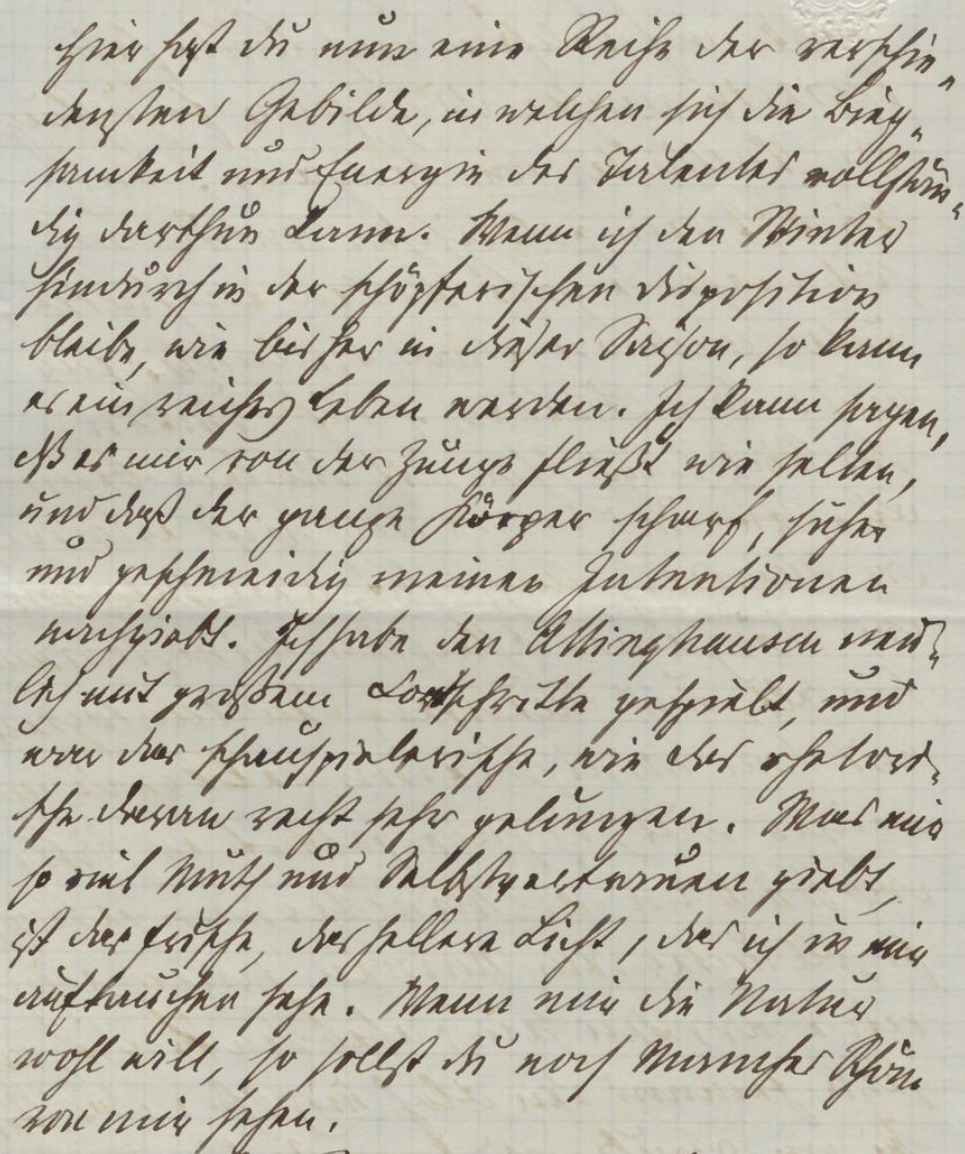 Hier hast du nun eine Reihe der verschie-
densten Gebilde, in welchen sich die Bieg-
samkeit und Energie des Talentes vollstän-
dig darthun kann. Wenn ich den Winter
hindurch in der schöpferischen Disposition
bleibe, wie bisher in dieser Saison, so kann
es ein reiches Leben werden. Ich kann sagen,
daß es mir von der Zunge fließt wie selten,
und daß der ganze Körper scharf, sicher
und geschmeidig meinen Intentionen
nachgiebt. Ich habe den Attinghausen neu-
lich mit großem Fortschritte gespielt, und
war das schauspielerische, wie das rhetori-
sche daran recht sehr gelungen. Was mir
so viel Muth und Selbstvertrauen giebt,
ist das frische, das hellere Licht, das ich in mir
auftauchen sehe. Wenn mir die Natur
wohl will, so sollst du noch Manches Schöne
von mir sehen.